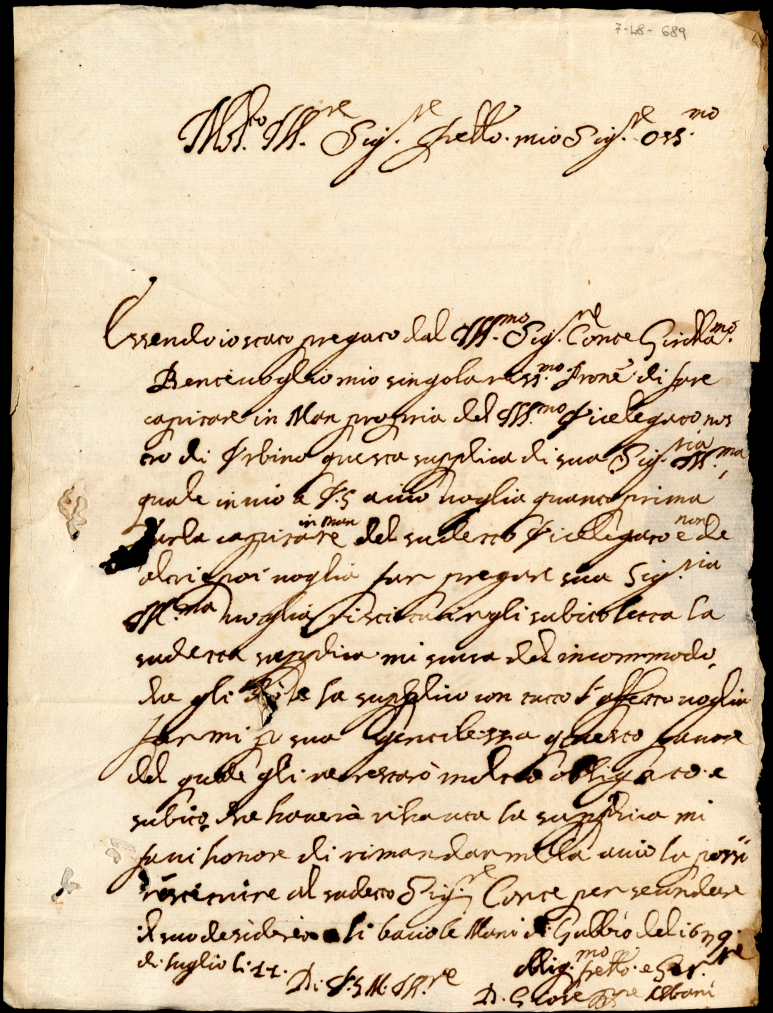 7-48-689
Molto Ill.re Sig.re frello. mio Sig.re oss.mo
Essendo io stato pregato dal Ill.mo Sig.re Conte Girolla.mo
Bentivoglio mio singolariss.mo Prone di fare
capitare in Man propria del Ill.mo Vicelegato nos
tro di Vrbino questa supplica di sua Sig.ria Ill.ma
quale inuio a V.S acciò uoglia quanto prima
farla capitare in man del sudetto Vicelegato e non de
altri e poi uoglia far pregare sua Sig.ria
Ill.ma uoglia subito letta la
sudetta supplica mi scusa del incommodo
che gli la supplico con tutto l'affetto uoglia
farmi p sua gentilezza questo fauore
del quale gli ne restarò molto obligato e
subito che hauerà rihauta la supplica mi
facci honore di rimandarmella acciò la possi
restituire al sudetto Sig.re Conte per secundare
il suo desiderio li bacio le Mani di Gubbio del 1679
di luglio li 11.
Di V.S M. Ill.re
oblig.mo e Ser.re
D. Gioseppe Albani